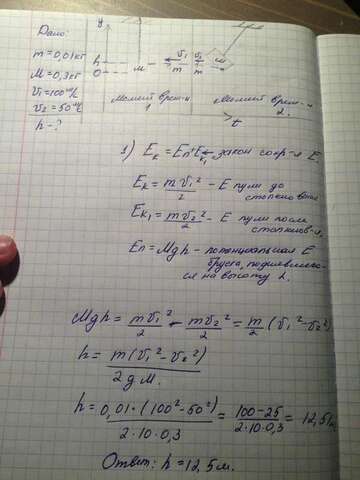 Дано:
m=0,01кг
M=0,3кг
v₁=100м/с
v₂=50м/с
h-?
y
h
0
м
v₁
m
v₂
m
Момент врем-и
1
Момент врем-и
2.
t
1) Eк = Eп+Eк₁ - закон сохр-я E.
Eк = mv₁²/2 - E пули до
столкновения
Eк₁ = mv₂²/2 - E пули после
столкновен-я.
Eп = Mgh - потенциальная E
бруска, поднявшего-
ся на высоту h.
Mgh = mv₁²/2 - mv₂²/2 = m/2 (v₁²-v₂²)
h = m(v₁²-v₂²)/2gM.
h = 0,01·(100²-50²)/2·10·0,3 = 100-25/2·10·0,3 = 12,5м.
Ответ: h = 12,5м.